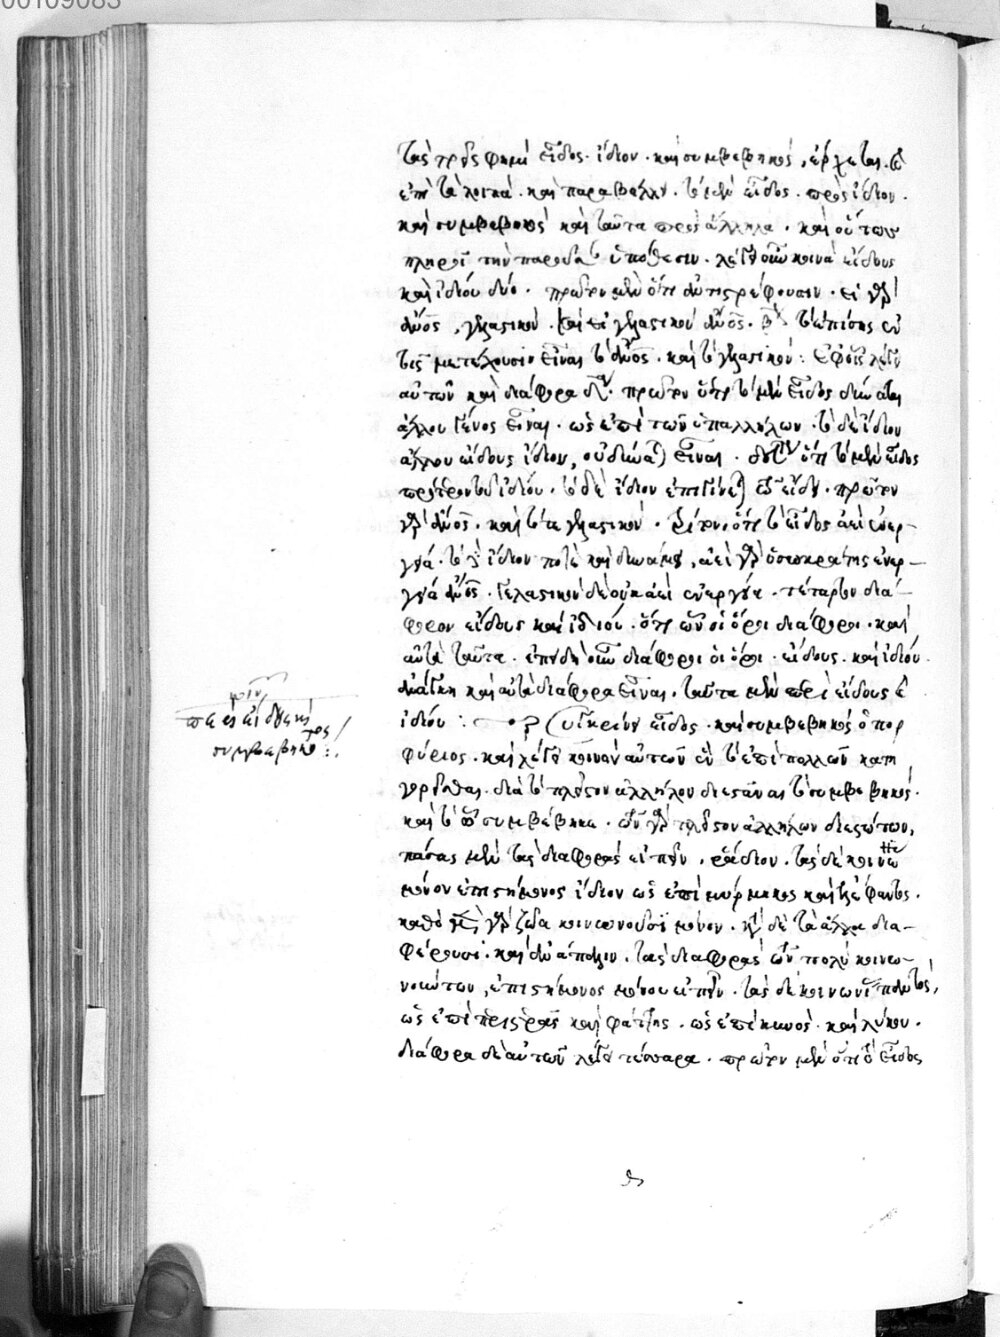 00109083
τὰς τρεῖς φημὶ εἶδος· ἴδιον· καὶ συμβεβηκός, ἔρχεται
ἐπὶ τὰ λοιπά· καὶ παραβάλλει· τὸ μὲν εἶδος· πρὸς ἴδιον·
καὶ συμβεβηκὸς καὶ ταῦτα πρὸς ἄλληλα· καὶ οὕτως
πληροῖ τὴν παροῦσαν ὑπόθεσιν· λέγει οὖν κοινὰ εἴδους
καὶ ἰδίου δύο· πρῶτον μὲν ὅτι ἀντιστρέφουσιν· εἰ γὰρ
ἄνος, γελαστικόν· καὶ εἰ γελαστικὸν ἄνος· βον τὸ ἐπίσης ὑπ
τοῖς μετέχουσιν εἶναι τὸ ἄνος· καὶ τὸ γελαστικόν: Ἐφοῖς λέγει
αὐτῶν καὶ διάφορα δ· πρῶτον ὅτι τὸ μὲν εἶδος δύναται
ἄλλου γένος εἶναι· ὡς ἐπὶ τῶν ὑπαλλήλων· τὸ δὲ ἴδιον
ἄλλου εἴδους ἴδιον, οὐ δύναται εἶναι· δεύτερον ὅτι τὸ μὲν εἶδος
πρότερον τοῦ ἰδίου· τὸ δὲ ἴδιον ἐπιγίνεται τῷ εἴδει· πρῶτον
γὰρ ἄνος· καὶ τότε γελαστικόν· τρίτον· ὅτι τὸ εἶδος ἀεὶ ἐνερ-
γείᾳ· τὸ δὲ ἴδιον ποτὲ καὶ δυνάμει, ἀεὶ γὰρ ὁ σωκράτης ἐνερ-
γείᾳ ἄνος· γελαστικὸν δὲ οὐκ ἀεὶ ἐνεργείᾳ· τέταρτον διά-
φορον εἴδους καὶ ἰδίου· ὅτι ὧν οἱ ὅροι διάφοροι· καὶ
αὐτὰ ταῦτα· ἐπειδὴ οὖν διάφοροι οἱ ὅροι· εἴδους· καὶ ἰδίου·
ἀνάγκη καὶ αὐτὰ διάφορα εἶναι· ταῦτα μὲν περὶ εἴδους καὶ
ἰδίου: Συγκρίνει εἶδος· καὶ συμβεβηκὸς ὁ πορ
φύριος· καὶ λέγει κοινὸν αὐτῶν ἓν τὸ ἐπὶ πολλῶν κατη
γορεῖσθαι· διὰ τὸ πλεῖστον ἀλλήλων διεστάναι τὸ συμβεβηκός·
καὶ τὸ ᾧ συμβέβηκε· τῶν γὰρ πλεῖστον ἀλλήλων διεστώτων,
πάσας μὲν τὰς διαφορὰς εἰπεῖν, ῥᾴδιον· τὰς δὲ κοινωνίας
μόνον ἐπιστήμονος ἴδιον ὡς ἐπὶ μύρμηκος καὶ ἐλέφαντος·
καθὸ μὲν γὰρ ζῷα κοινωνοῦσι μόνον· κατὰ δὲ τὰ ἄλλα δια-
φέρουσι· καὶ ἀνάπαλιν· τὰς διαφορὰς τῶν πολὺ κοινω-
νούντων, ἐπιστήμονος μόνου εἰπεῖν· τὰς δὲ κοινωνίας παντός,
ὡς ἐπὶ περιστερᾶς καὶ φάττης· ὡς ἐπὶ κυνὸς· καὶ λύκου·
διάφορα δὲ αὐτῶν λέγει τέσσαρα· πρῶτον μὲν ὅτι τὸ εἶδος
περὶ εἴδους καὶ
συμβεβηκότος: